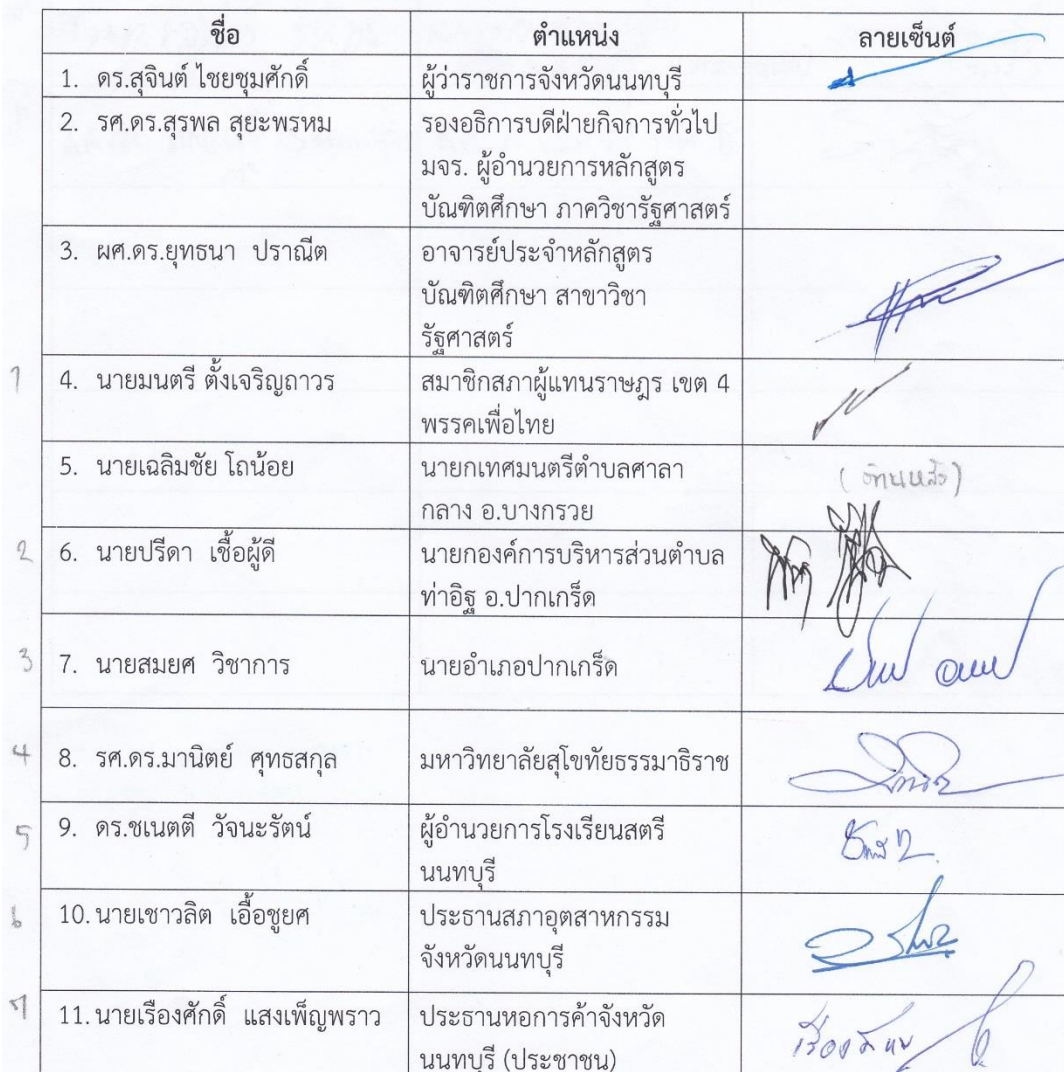 ชื่อ ตำแหน่ง ลายเซ็นต์
1. ดร.สุจินต์ ไชยชุมศักดิ์ ผู้ว่าราชการจังหวัดนนทบุรี
2. รศ.ดร.สุรพล สุยะพรหม รองอธิการบดีฝ่ายกิจการทั่วไป
มจร. ผู้อำนวยการหลักสูตร
บัณฑิตศึกษา ภาควิชารัฐศาสตร์
3. ผศ.ดร.ยุทธนา ปราณีต อาจารย์ประจำหลักสูตร
บัณฑิตศึกษา สาขาวิชา
รัฐศาสตร์
1 4. นายมนตรี ตั้งเจริญถาวร สมาชิกสภาผู้แทนราษฎร เขต 4
พรรคเพื่อไทย
5. นายเฉลิมชัย โถน้อย นายกเทศมนตรีตำบลศาลา
กลาง อ.บางกรวย
2 6. นายปรีดา เชื้อผู้ดี นายกองค์การบริหารส่วนตำบล
ท่าอิฐ อ.ปากเกร็ด
3 7. นายสมยศ วิชาการ นายอำเภอปากเกร็ด
4 8. รศ.ดร.มานิตย์ ศุทธสกุล มหาวิทยาลัยสุโขทัยธรรมาธิราช
5 9. ดร.ชเนตตี วัจนะรัตน์ ผู้อำนวยการโรงเรียนสตรี
นนทบุรี
6 10. นายเชาวลิต เอื้อชูยศ ประธานสภาอุตสาหกรรม
จังหวัดนนทบุรี
7 11. นายเรืองศักดิ์ แสงเพ็ญพราว ประธานหอการค้าจังหวัด
นนทบุรี (ประชาชน)